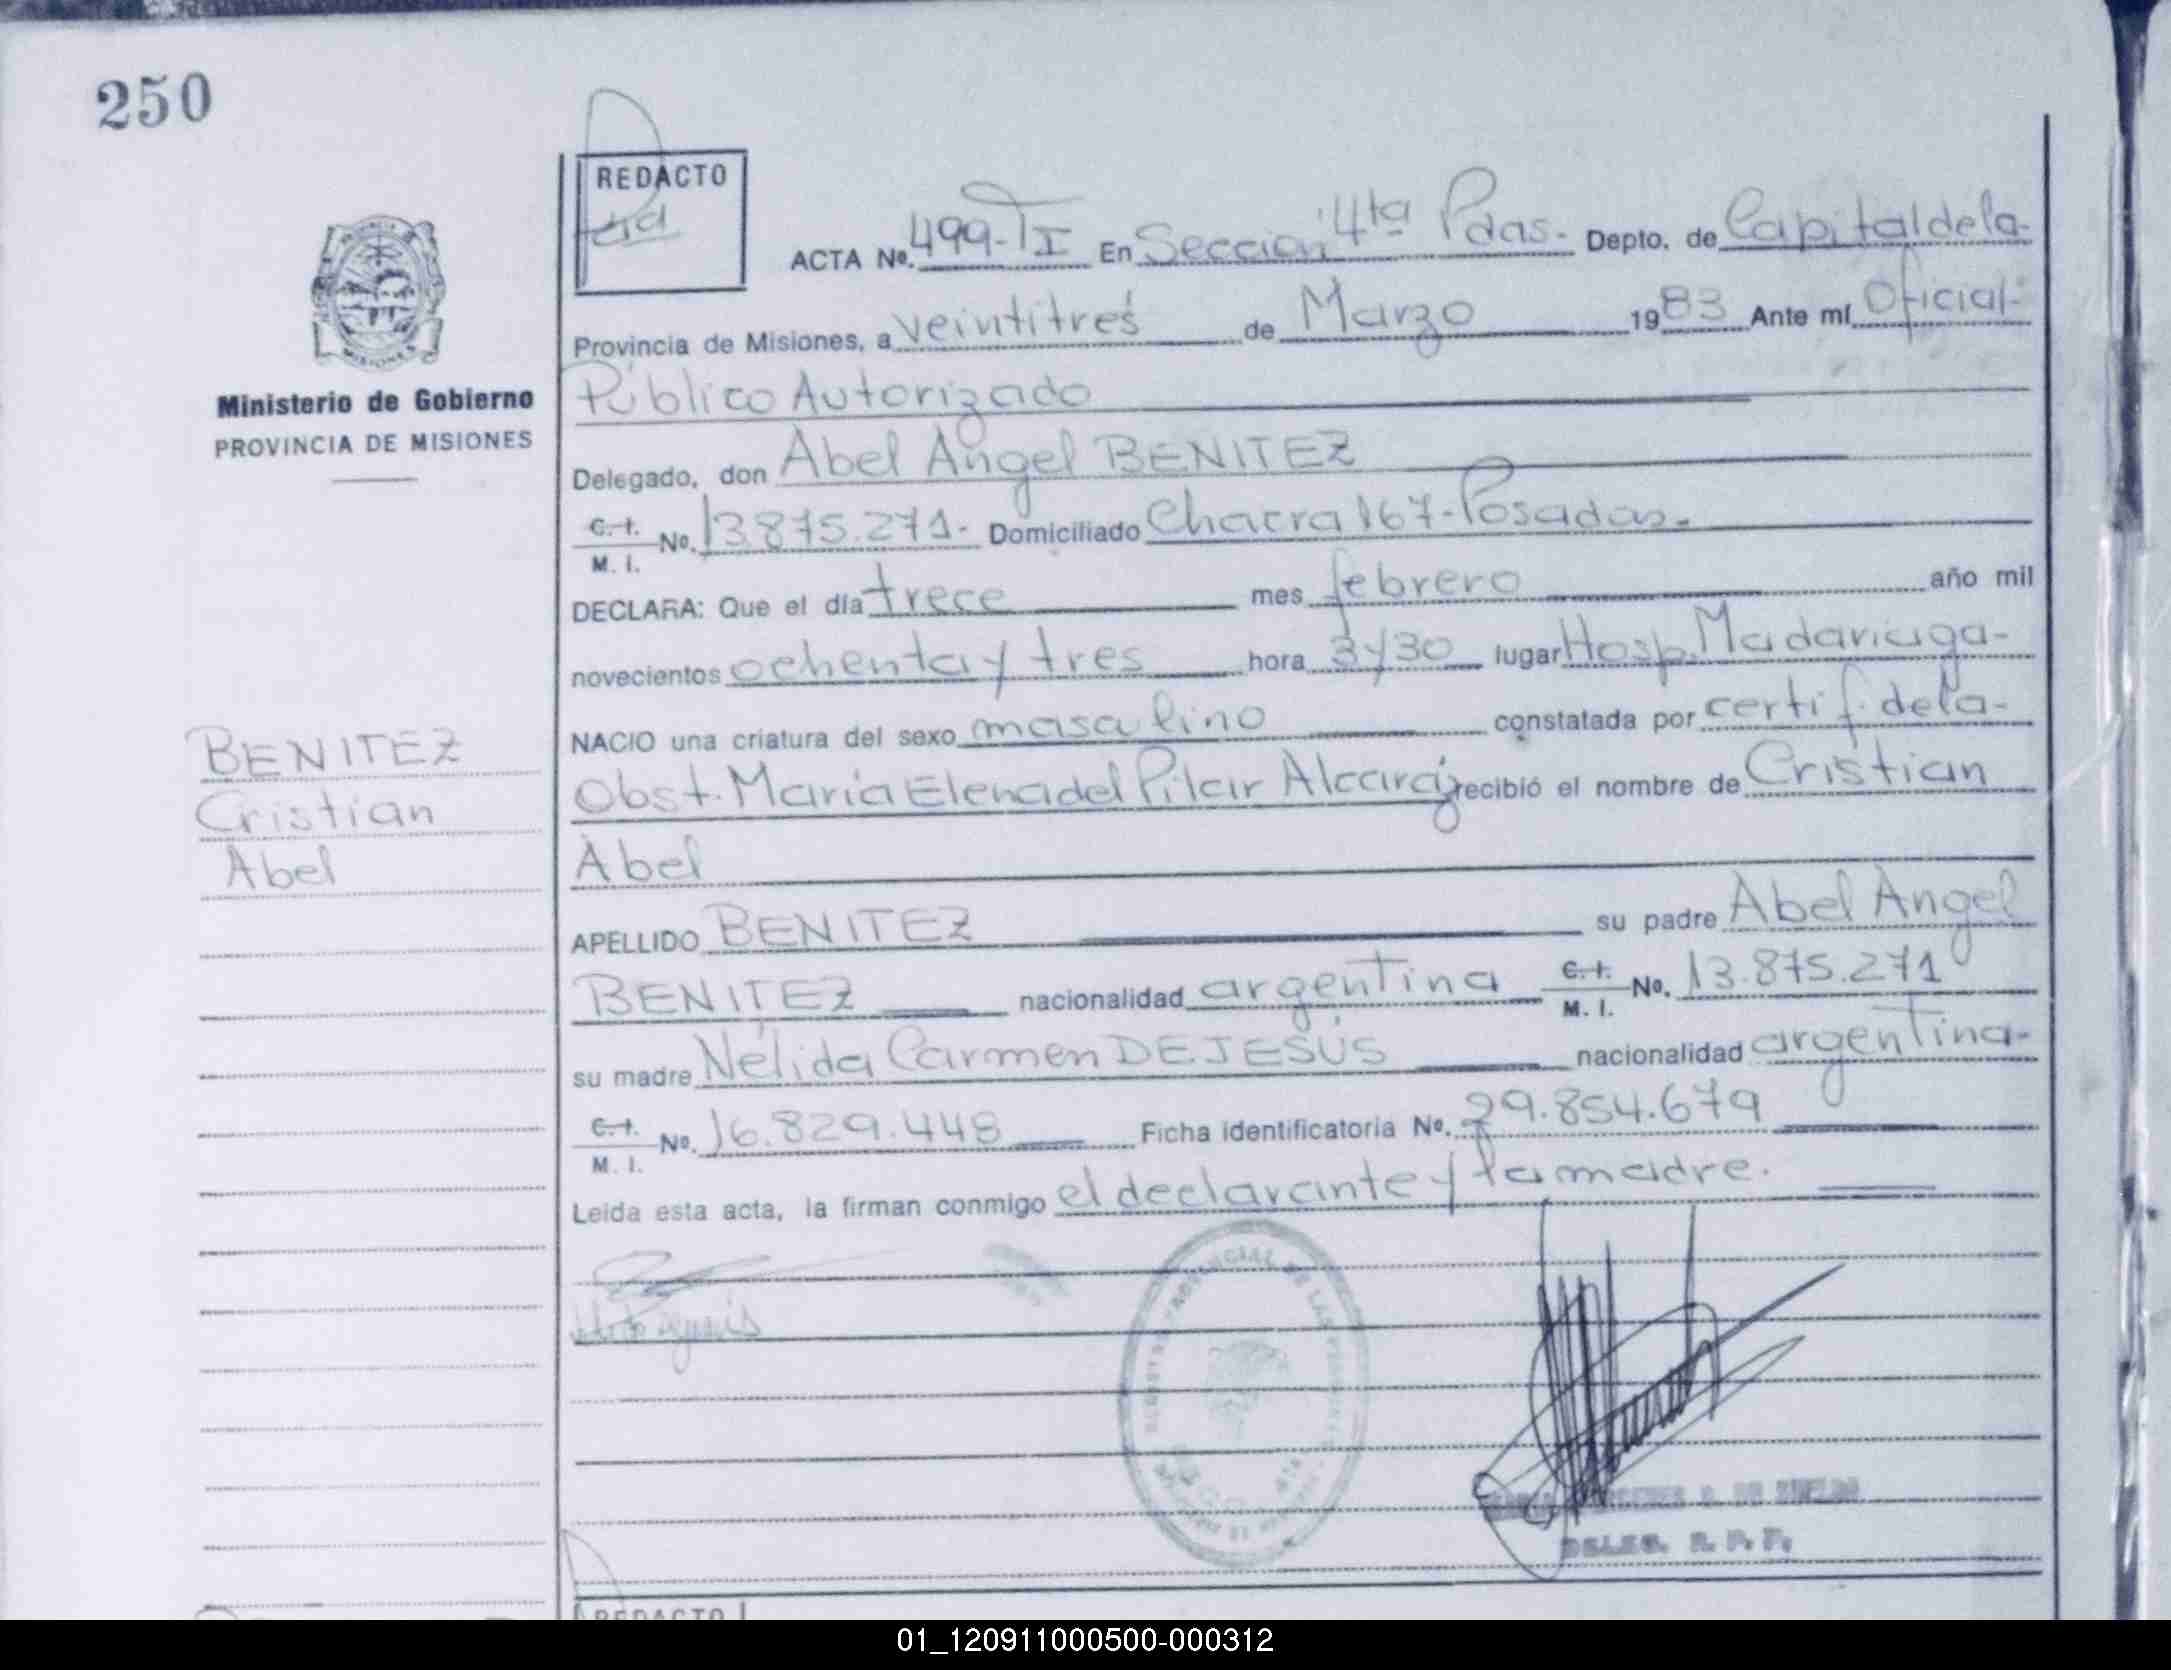 250
REDACTO
ACTA Nº. 499-TI En Sección 4ta Pdas.- Depto. de Capital de la-
Provincia de Misiones, a veintitrés de Marzo 1983 Ante mí Oficial-
Ministerio de Gobierno
PROVINCIA DE MISIONES
Público Autorizado
Delegado, don Abel Angel BENITEZ
C. I.
M. I. No. 13.875.271.- Domiciliado Chacra 167-Posadas.-
DECLARA: Que el día trece mes febrero año mil
novecientos ochenta y tres hora 3y30 lugar Hosp. Madariaga-
NACIO una criatura del sexo masculino constatada por certif. de la-
Obst. María Elena del Pilar Alcaráz recibió el nombre de Cristian
Abel
BENITEZ
Cristian
Abel
APELLIDO BENITEZ su padre Abel Angel
BENITEZ nacionalidad argentina C. I.
M. I. No. 13.875.271
su madre Nélida Carmen DE JESÚS nacionalidad argentina-
C. I.
M. I. No. 16.829.448 Ficha identificatoria Nº. 29.854.679
Leida esta acta, la firman conmigo el declarante y la madre.
DELEG. R. P. P.
REDACTO
01_120911000500-000312